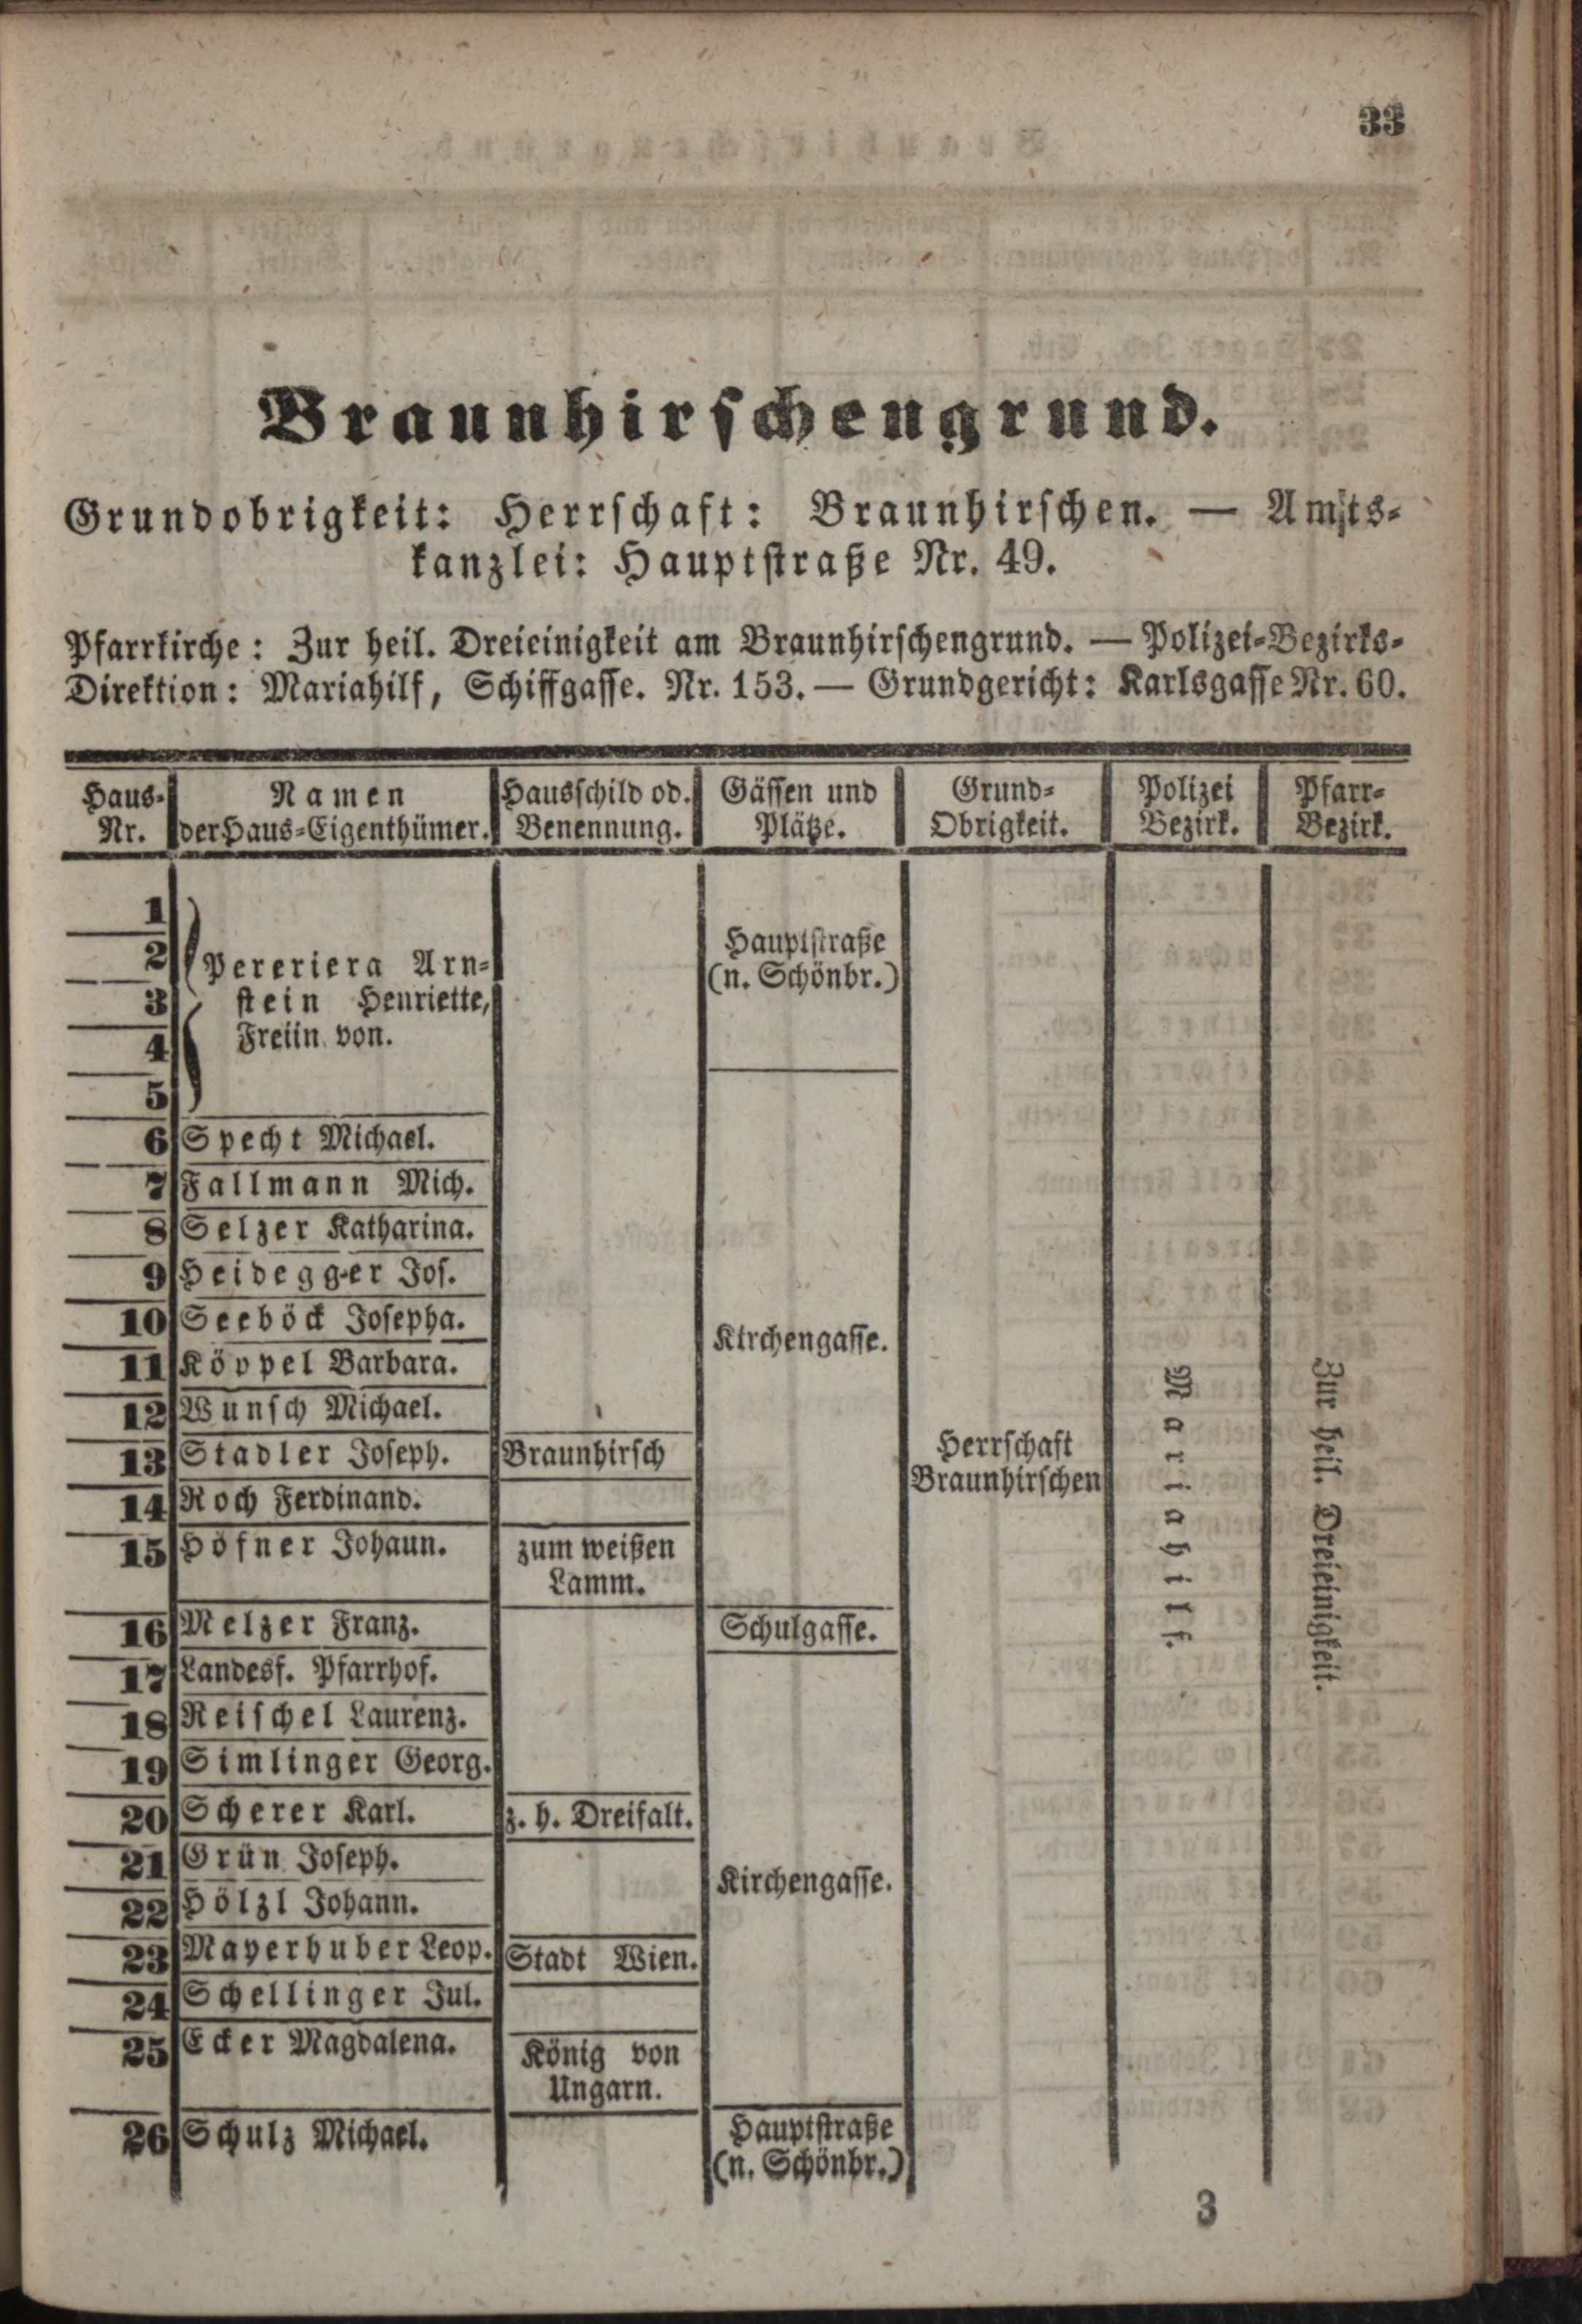 33
Braunhirschengrund.
Grundobrigkeit: Herrschaft: Braunhirschen. — Amts-
kanzlei: Hauptstraße Nr. 49.
Pfarrkirche: Zur heil. Dreieinigkeit am Braunhirschengrund. — Polizei-Bezirks-
Direktion: Mariahilf, Schiffgasse. Nr. 153. — Grundgericht: Karlsgasse Nr. 60.
Haus- Namen Hausschild od. Gässen und Grund- Polizei Pfarr-
Nr. der Haus-Eigenthümer. Benennung. Plätze. Obrigkeit. Bezirk. Bezirk.
1
2
3
4
5
Pereriera Arn-
stein Henriette,
Freiin von.
Hauptstraße
(n. Schönbr.)
6 Specht Michael.
7 Fallmann Mich.
8 Selzer Katharina.
9 Heidegger Jos.
10 Seeböck Josepha.
Kirchengasse.
11 Köppel Barbara.
12 Wunsch Michael.
13 Stadler Joseph. Braunhirsch
Herrschaft
Braunhirschen
Mariahilf.
Zur heil. Dreieinigkeit.
14 Roch Ferdinand.
15 Höfner Johaun. zum weißen
Lamm.
16 Melzer Franz. Schulgasse.
17 Landesf. Pfarrhof.
18 Reischel Laurenz.
19 Simlinger Georg.
20 Scherer Karl. z. h. Dreifalt.
21 Grün Joseph.
Kirchengasse.
22 Hölzl Johann.
23 Mayerhuber Leop. Stadt Wien.
24 Schellinger Jul.
25 Ecker Magdalena. König von
Ungarn.
26 Schulz Michael. Hauptstraße
(n. Schönbr.)
3